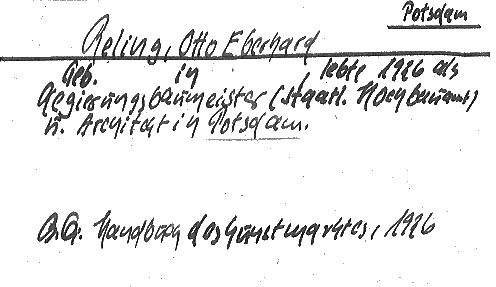 Potsdam
Reling, Otto Eberhard
Geb. in , lebte 1926 als
Regierungsbaumeister (Staatl. Hochbauamt)
u. Architekt in Potsdam.
B.Q. Handbuch des Kunstmarktes, 1926